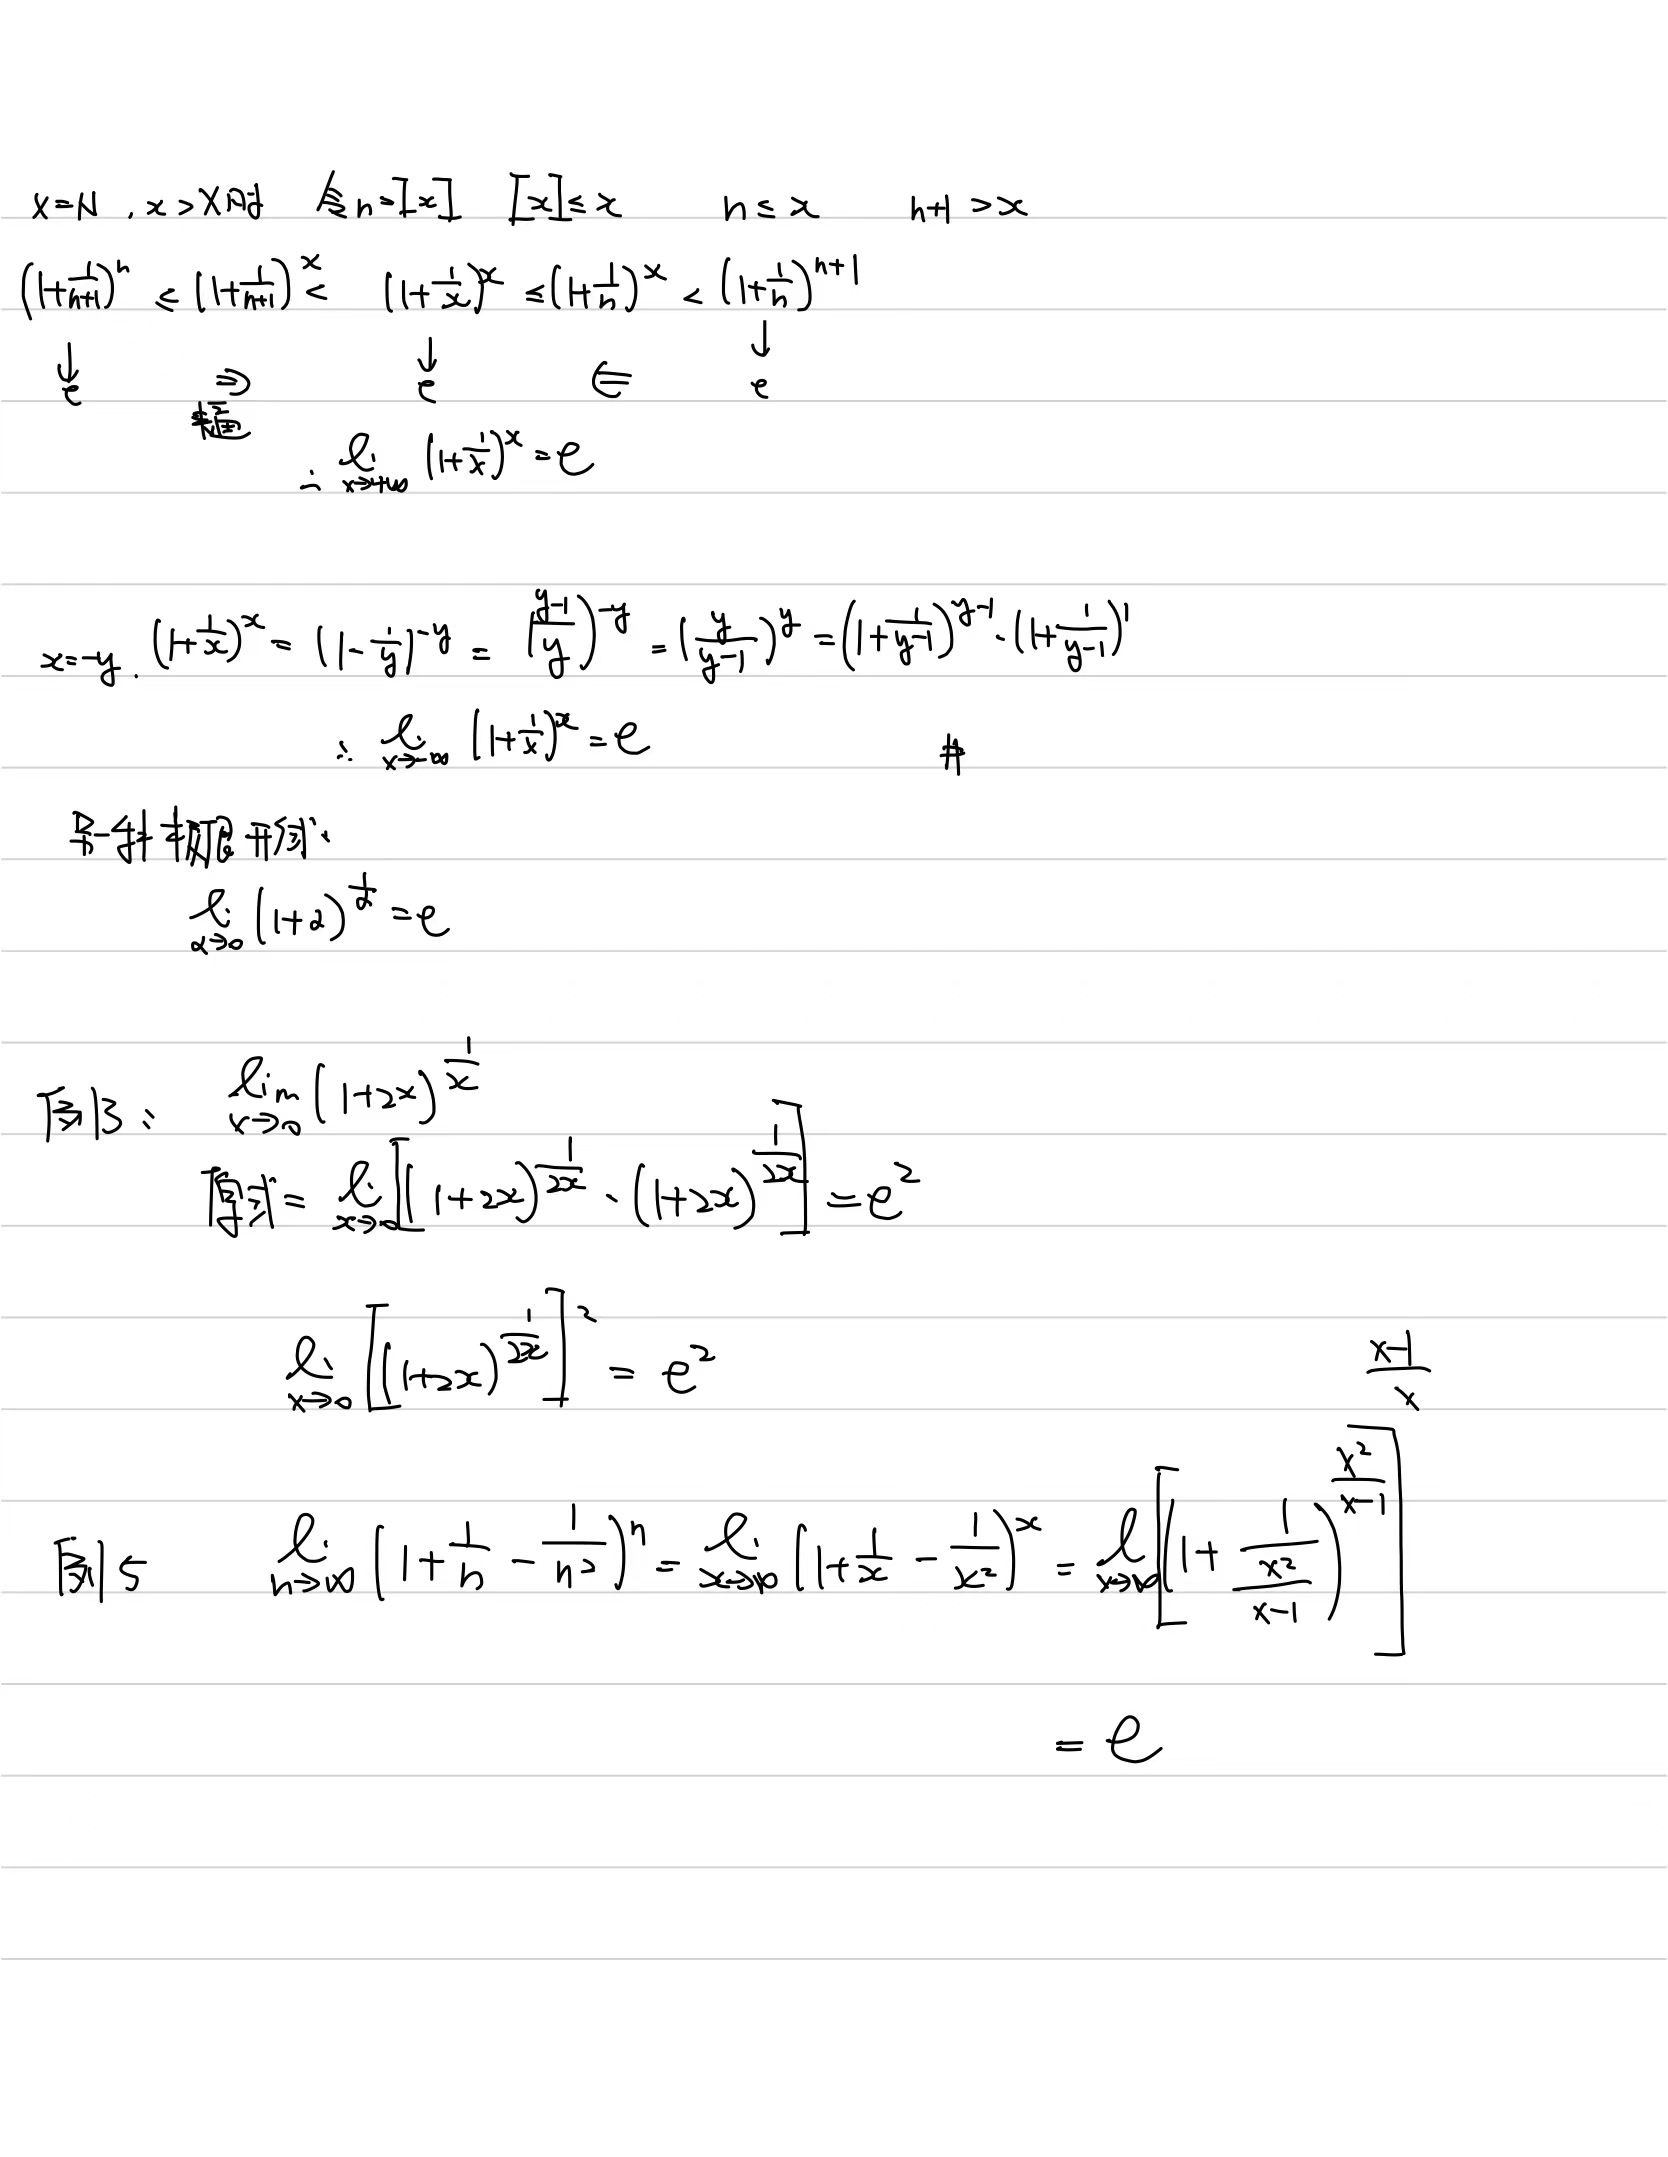 X=N , x>X时 令n=[x] [x]≤x n≤x n+1>x
(1+1/(n+1))^n ≤ (1+1/(n+1))^x < (1+1/x)^x ≤ (1+1/n)^x < (1+1/n)^(n+1)
↓ ↓ ↓
e ⇒ e ⇐ e
∴ li_(x→+∞) (1+1/x)^x = e
x=-y. (1+1/x)^x = (1-1/y)^(-y) = ((y-1)/y)^(-y) = (y/(y-1))^y = (1+1/(y-1))^(y-1) · (1+1/(y-1))^1
∴ li_(x→-∞) (1+1/x)^x = e #
另一种极限形式:
li_(α→0) (1+α)^(1/α) = e
例3: lim_(x→0) (1+2x)^(1/x)
原式= li_(x→0) [(1+2x)^(1/(2x)) · (1+2x)^(1/(2x))] = e^2
li_(x→0) [(1+2x)^(1/(2x))]^2 = e^2
(x-1)/x
例5 li_(n→∞) (1+1/n-1/n^2)^n = li_(x→∞) (1+1/x-1/x^2)^x = l_(x→∞) [(1+1/(x^2/(x-1)))^(x^2/(x-1))]
= e